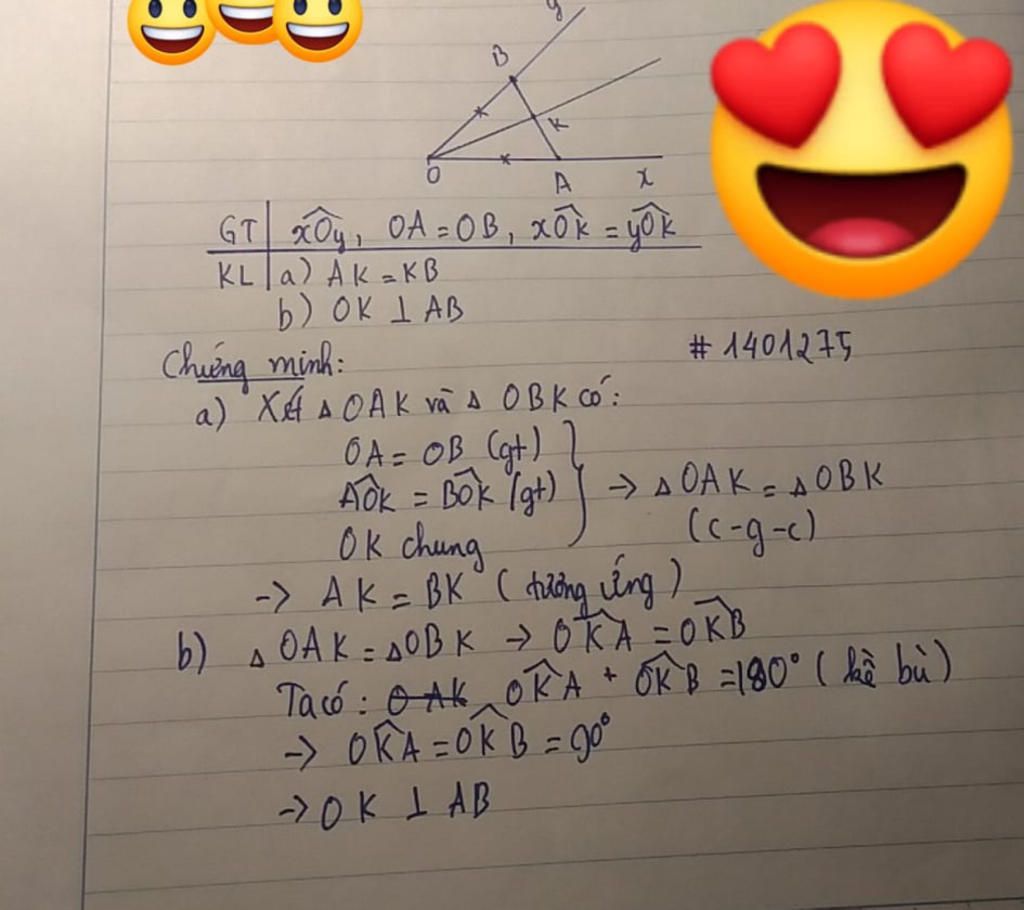 y
B
K
O
A
x
GT | xÔy, OA = OB, xÔk = yÔk
KL | a) AK = KB
b) OK ⊥ AB
# 1401275
Chứng minh:
a) Xét ▵ OAK và ▵ OBK có:
OA = OB (gt)
AÔK = BÔK (gt)
OK chung
} → ▵OAK = ▵OBK
(c-g-c)
→ AK = BK (tương ứng)
b) ▵OAK = ▵OBK → OK̂A = OK̂B
Ta có: O AK OK̂A + OK̂B = 180° (kề bù)
→ OK̂A = OK̂B = 90°
→ OK ⊥ AB